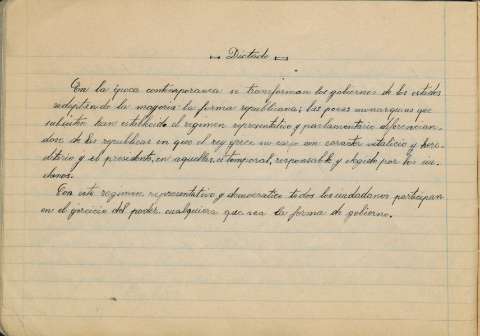 Dictado
En la época contemporanea se transforman los gobiernos de los estados
adoptando la mayoria la forma republicana; las pocas monarquias que
subsisten han establecido el regimen representativo y parlamentario diferencian-
dose de las republicas en que el rey ejerce su cargo con caracter vitalicio y here-
ditario y el presidente, en aquellas, es temporal, responsable y elegido por los ciu-
danos.
Con este regimen representativo y democratico todos los ciudadanos participan
en el ejercicio del poder cualquiera que sea la forma de gobierno.